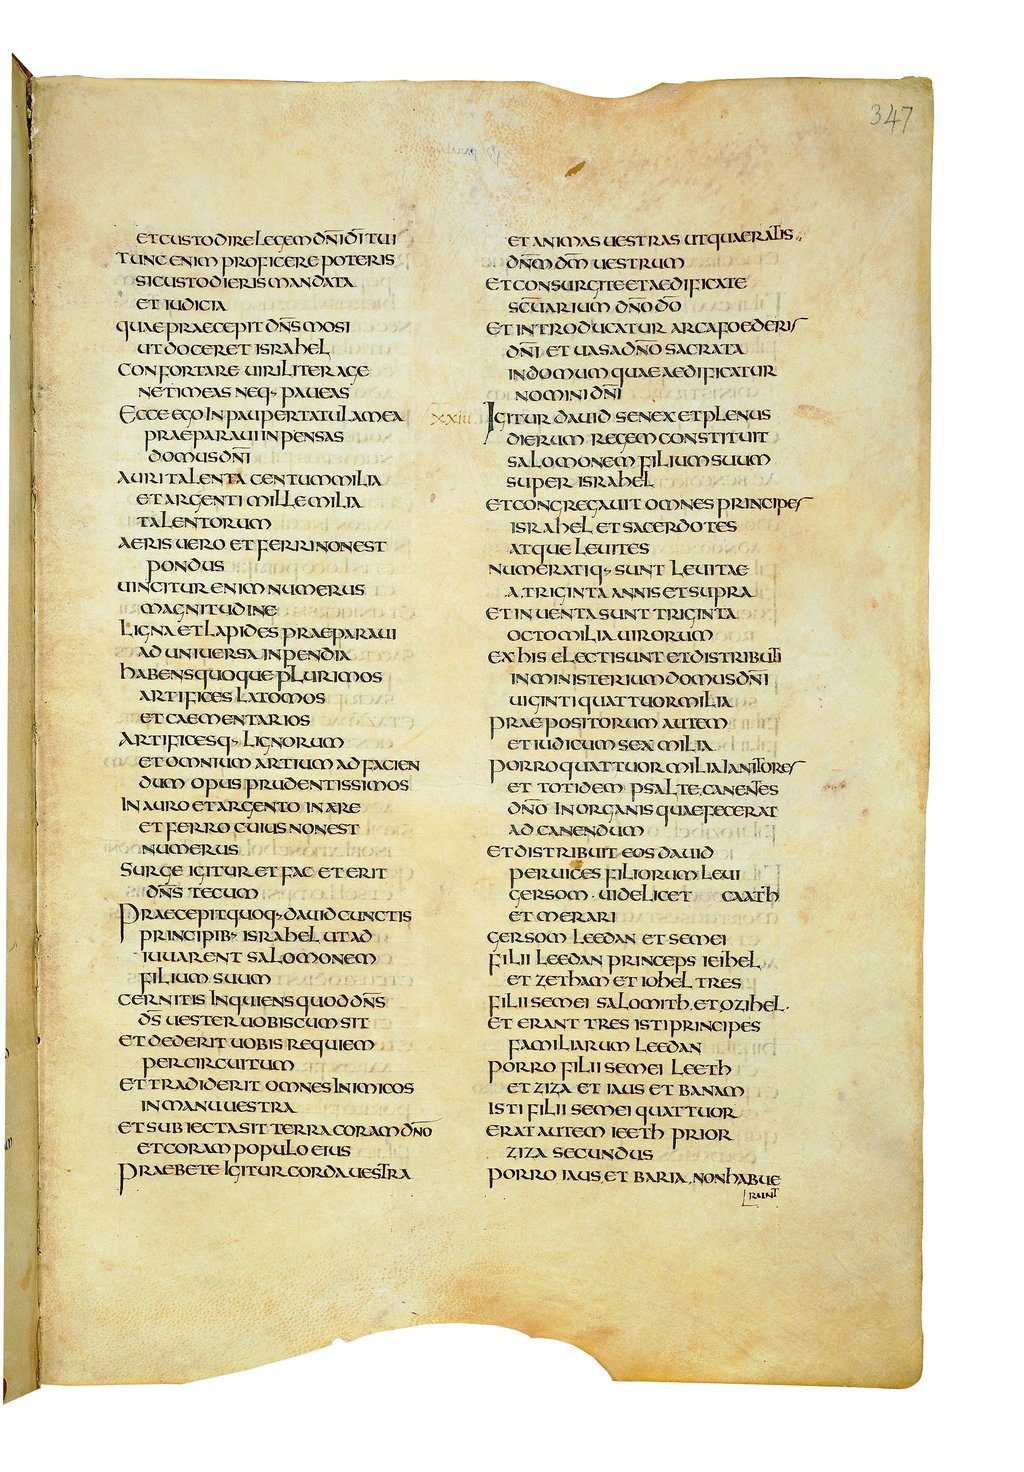 347
ET CUSTODIRE LEGEM DN̄I DĪ TUI
TUNC ENIM PROFICERE POTERIS
SI CUSTODIERIS MANDATA
ET IUDICIA
QUAE PRAECEPIT DN̄S MOSI
UT DOCERET ISRAHEL
CONFORTARE UIRILITER AGE
NE TIMEAS NEQ· PAUEAS
ECCE EGO IN PAUPERTATULA MEA
PRAEPARAUI INPENSAS
DOMUS DN̄I
AURI TALENTA CENTUM MILIA
ET ARGENTI MILLE MILIA
TALENTORUM
AERIS UERO ET FERRI NON EST
PONDUS
UINCITUR ENIM NUMERUS
MAGNITUDINE
LIGNA ET LAPIDES PRAEPARAUI
AD UNIUERSA INPENDIA
HABENS QUOQUE PLURIMOS
ARTIFICES LATOMOS
ET CAEMENTARIOS
ARTIFICESQ· LIGNORUM
ET OMNIUM ARTIUM AD FACIEN
DUM OPUS PRUDENTISSIMOS
IN AURO ET ARGENTO IN AERE
ET FERRO CUIUS NON EST
NUMERUS
SURGE IGITUR ET FAC ET ERIT
DN̄S TECUM
PRAECEPIT QUOQ· DAUID CUNCTIS
PRINCIPIB· ISRAHEL UT AD
IUUARENT SALOMONEM
FILIUM SUUM
CERNITIS INQUIENS QUOD DN̄S
DS̄ UESTER UOBISCUM SIT
ET DEDERIT UOBIS REQUIEM
PER CIRCUITUM
ET TRADIDERIT OMNES INIMICOS
IN MANU UESTRA
ET SUBIECTA SIT TERRA CORAM DN̄O
ET CORAM POPULO EIUS
PRAEBETE IGITUR CORDA UESTRA
ET ANIMAS UESTRAS UT QUAERATIS
DN̄M DM̄ UESTRUM
ET CONSURGITE ET AEDIFICATE
SC̄UARIUM DN̄O DŌ
ET INTRODUCATUR ARCA FOEDERIS
DN̄I ET UASA DN̄O SACRATA
IN DOMUM QUAE AEDIFICATUR
NOMINI DN̄I
XXIII IGITUR DAUID SENEX ET PLENUS
DIERUM REGEM CONSTITUIT
SALOMONEM FILIUM SUUM
SUPER ISRAHEL
ET CONGREGAUIT OMNES PRINCIPES
ISRAHEL ET SACERDOTES
ATQUE LEUITES
NUMERATIQ· SUNT LEUITAE
A TRIGINTA ANNIS ET SUPRA
ET INUENTA SUNT TRIGINTA
OCTO MILIA UIRORUM
EX HIS ELECTI SUNT ET DISTRIBUTI
IN MINISTERIUM DOMUS DN̄I
UIGINTI QUATTUOR MILIA
PRAEPOSITORUM AUTEM
ET IUDICUM SEX MILIA
PORRO QUATTUOR MILIA IANITORES
ET TOTIDEM PSALTE CANENTES
DN̄O IN ORGANIS QUAE FECERAT
AD CANENDUM
ET DISTRIBUIT EOS DAUID
PER UICES FILIORUM LEUI
GERSOM · UIDELICET CAATH
ET MERARI
GERSOM LEEDAN ET SEMEI
FILII LEEDAN PRINCEPS IEIHEL
ET ZETHAM ET IOHEL TRES
FILII SEMEI SALOMITH ET OZIHEL·
ET ERANT TRES ISTI PRINCIPES
FAMILIARUM LEEDAN
PORRO FILII SEMEI LEETH
ET ZIZA ET IAUS ET BANAM
ISTI FILII SEMEI QUATTUOR
ERAT AUTEM IEETH PRIOR
ZIZA SECUNDUS
PORRO IAUS ET BARIA NON HABUE
RUNT